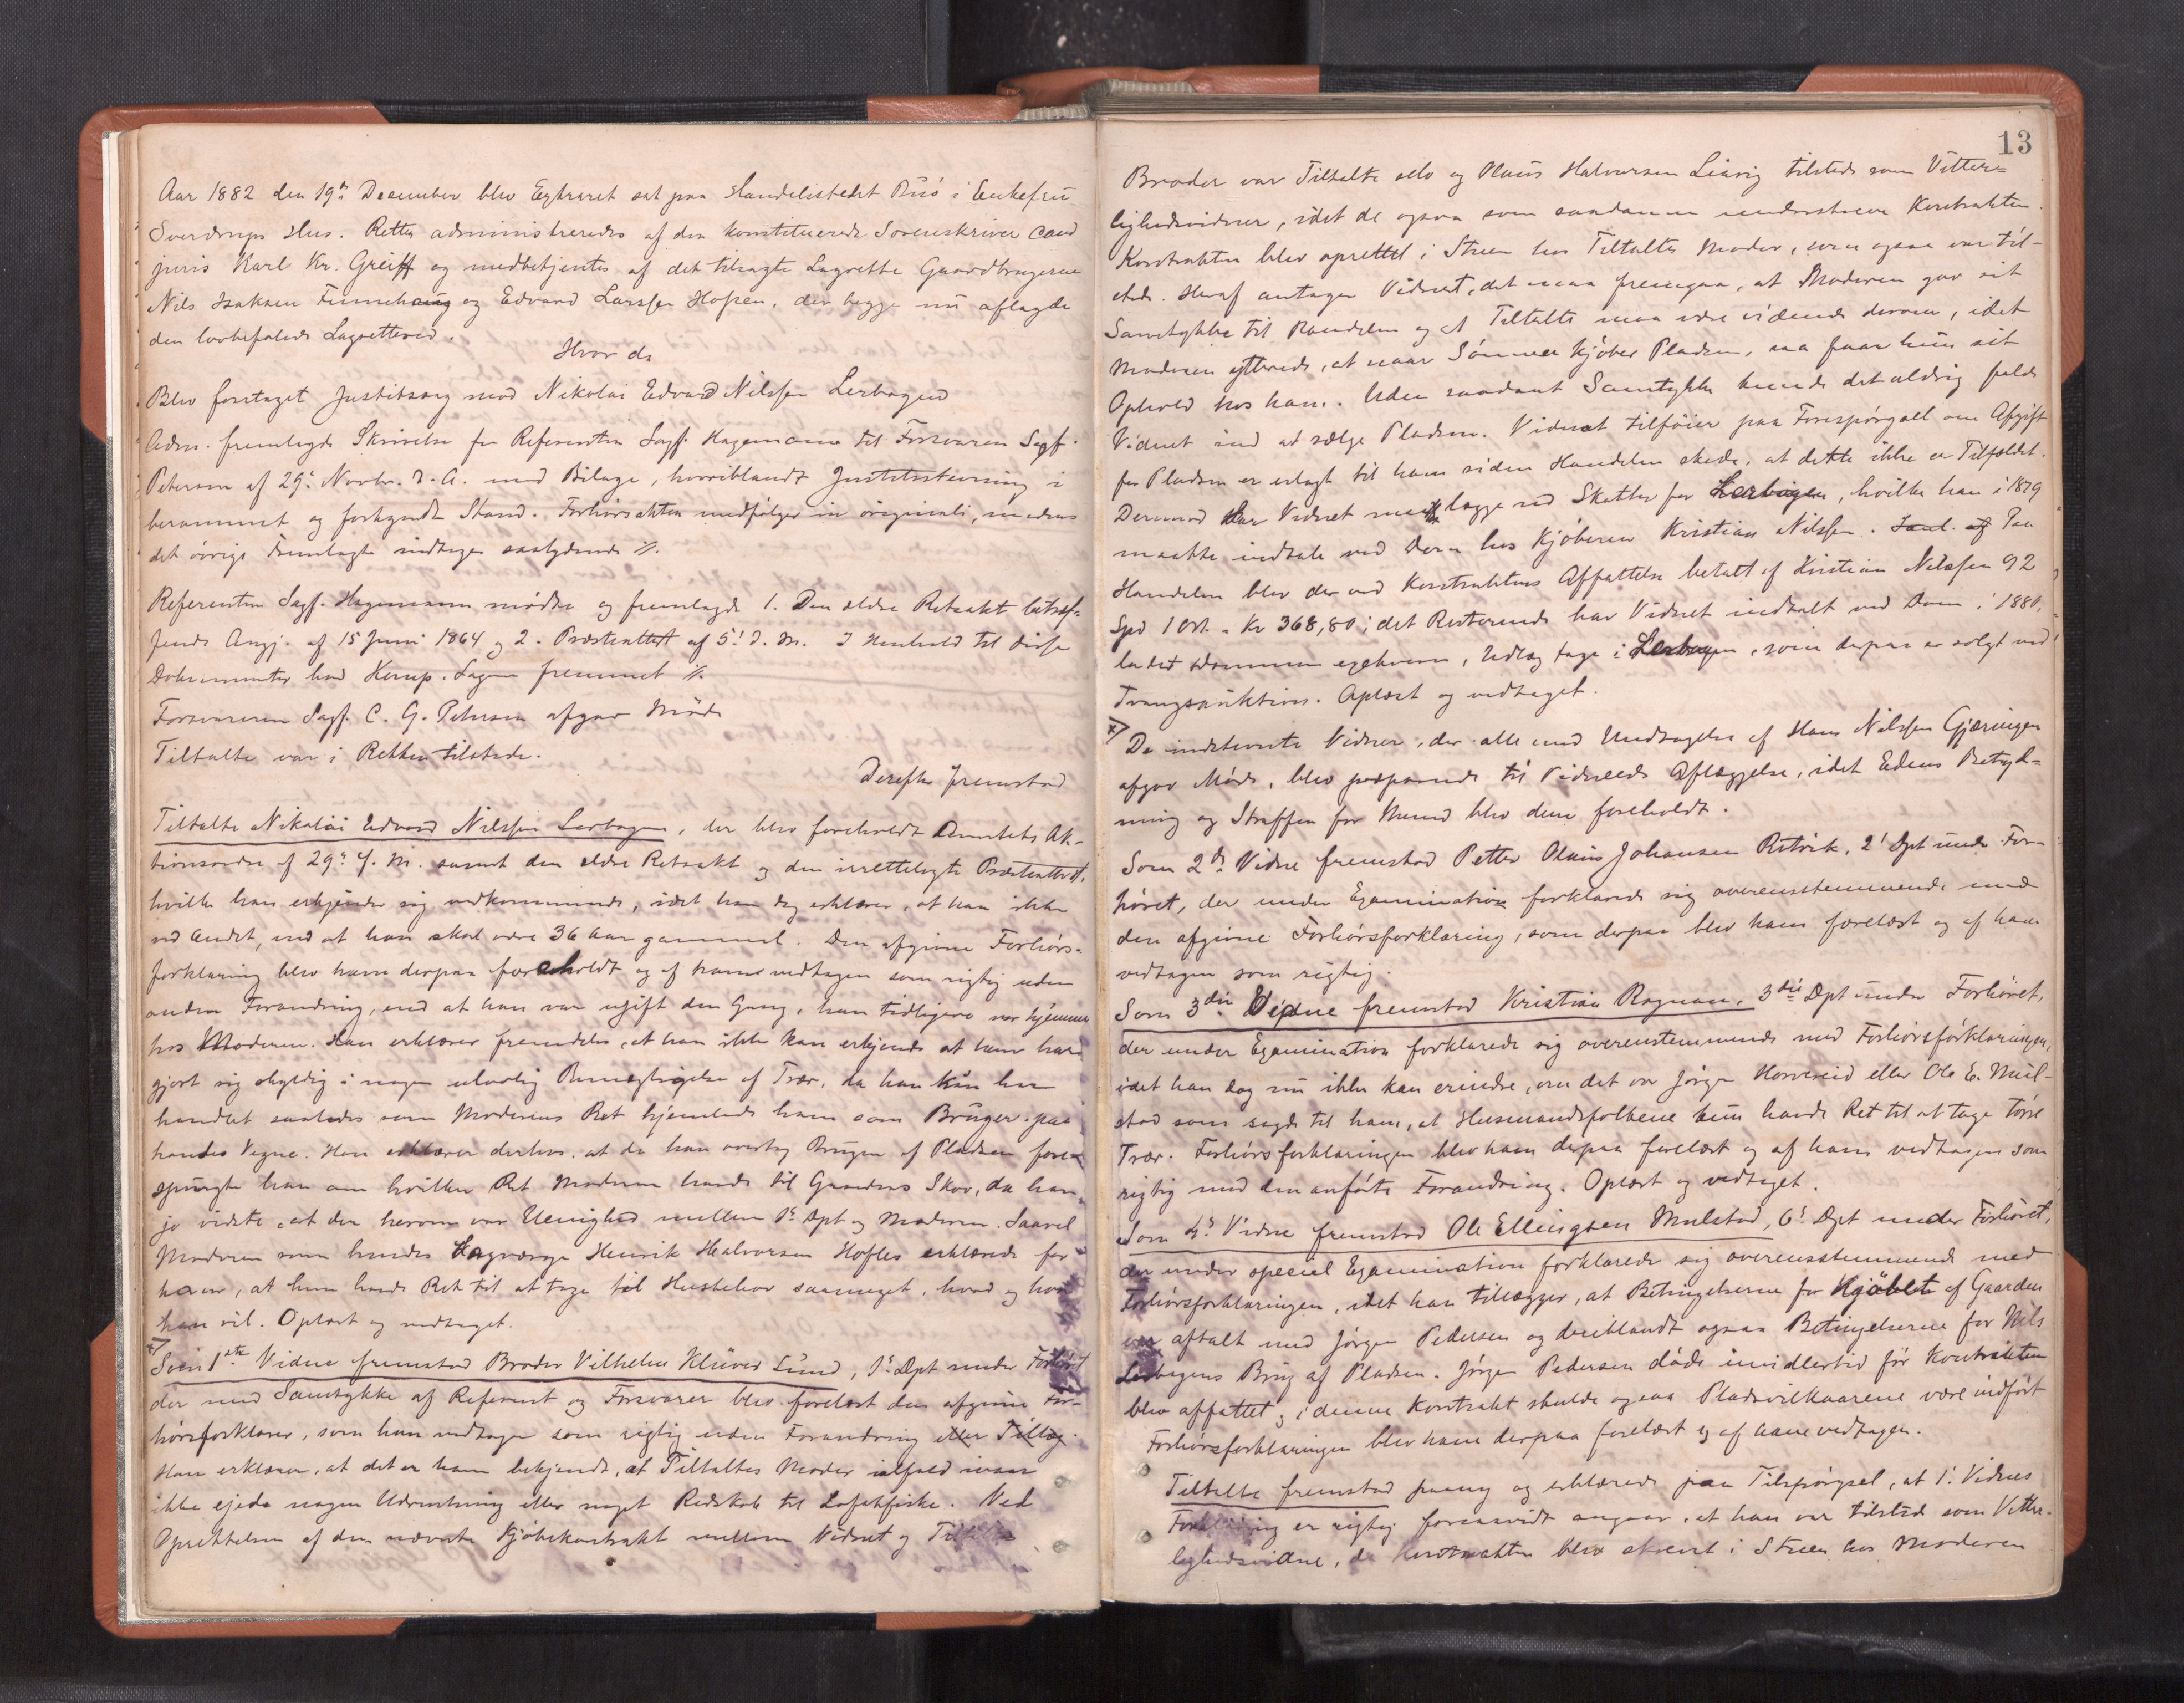 Aar 1882 den 19de December blev Extraret sat paa Handelsstedet Buö i Enkefru
Sverdrups Hus. Retten administreredes af den konstituerede Sorenskriver Cand
juris Karl Kr. Greiff og medbetjentes af det tilsagte Lagrette Gaardbrugerne
Nils Isaksen Finnehaug og Edvard Larssen Hopen, der begge nu aflagde
den lovbefalede Lagretteed.
Hvor da
Blev foretaget Justitssag mod Nikolai Edvard Nilssen Lerbagen
Adm. fremlagde Skrivelse fra Referenten Sagf. Hagemann til Forsvareren Sagf.
Petersen af 29. Novbr. d. A. med Bilage, hvoriblandt Justitsstevning i
berammet og forkyndt Stand. Forhörsakten medfölger in originali, medens
det övrige Fremlagte indtages saalydende //.
Referenten Sagf. Hagemann mödte og fremlagde 1. Den ældre Retsakt betræf-
fende Angj. af 15 Juni 1864 og 2. Præsteattest af 5. d. M. I Henhold til disse
Dokumenter hed Komp. Sagen fremmet //.
Forsvareren Sagf. C. G. Petersen afgav Möde
Tiltalte var i Retten tilstede.
Derefter fremstod
Tiltalte Nikolai Edvard Nilssen Lerbagen, der blev foreholdt Amtets Ak-
tionsordre af 29. f. M. samt den ældre Retsakt og den irettelagte Præsteattest,
hvilke han erkjender sig vedkommende, idet han dog erklærer, at han ikke
ved Andet, end at han skal være 36 Aar gammel. Den afgivne Forhörs-
forklaring blev ham derpaa foreholdt og af ham vedtagen som rigtig uden
anden Forandring, end at han var ugift den Gang, han tidligere var hjemme
hos Moderen. Han erklærer fremdeles, at han ikke kan erkjende at have
gjort sig skyldig i nogen ulovlig Bemægtigelse af Trær, da han kun har
handlet saaledes som Moderens Ret hjemlede ham som Bruger paa
hendes Vegne. Han erklærer derhos, at da han overtog Brugen af Pladsen fore-
spurgte han om hvilken Ret Moderen havde til Gaardens Skov, da han
jo vidste, at der herom var Uenighed mellem 1ste Dpt og Moderen. Saavel
Moderen som hendes Lagværge Henrik Halvorsen Hofles erklærede for
ham, at hun havde Ret til at tage til Husbehov saameget, hvad og hvor
han vil. Oplæst og vedtaget.
Som 1ste Vidne fremstod Broder Vilhelm Klüver Lund, 1ste Dpt under Forhöret
der med Samtykke af Referent og Forsvarer blev forelæst den afgivne For-
hörsforklaring, som han vedtager som rigtig uden Forandring eller Tillæg.
Han erklærer, at det er ham bekjendt, at Tiltaltes Moder ialfald
ikke ejede nogen Udrustning eller noget Redskab til Lofotfiske. Ved
Oprettelsen af den nævnte Kjöbekontrakt mellem Vidnet og Tiltaltes
13
Broder var Tiltalte selv og Klaus Halvorsen Liavig tilstede som Vitter-
lighedsvidner, idet de ogsaa som saadanne underskreve Kontrakten.
Kontrakten blev oprettet i Stuen hos Tiltaltes Moder, som ogsaa var til-
stede. Heraf antager Vidnet, det maa fremgaa, at Moderen gav sit
Samtykke til Handelen og at Tiltalte maa være vidende derom, idet
Moderen ytrede, at naar Sönnen kjöber Pladsen, saa faar hun sit
Ophold hos ham. Uden saadant Samtykke kunde det aldrig falde
Vidnet ind at sælge Pladsen. Vidnet tilföier paa Forespörgsel om Afgift
for Pladsen er erlagt til ham siden Handelen skede, at dette ikke er Tilfældet.
Derimod har Vidnet maattet lægge ud Skatter for Lerbagen, hvilke han i 1879
maatte indtale ved Dom hos Kjöberen Kristian Nilssen. Paa
Handelen blev der ved Kontraktens Affattelse betalt af Kristian Nilssen 92
Spd 1 Ort = Kr 368,80; det Resterende har Vidnet indtalt ved Dom i 1880,
ladet Dommen exekvere, Udlæg tage i Lerbagen, som derpaa er solgt ved
Tvangsauktion. Oplæst og vedtaget.
De indstevnte Vidner, der alle med Undtagelse af Hans Nilssen Gjæringen
afgav Möde, blev præparerede til Vidneeds Aflæggelse, idet Edens Betyd-
ning og Straffen for Mened blev dem foreholdt.
Som 2det Vidne fremstod Petter Olaus Johansen Rotvik, 2. Dpt under For-
höret, der under Examination forklarede sig overensstemmende med
den afgivne Forhörsforklaring, som derpaa blev ham forelæst og af ham
vedtagen som rigtig.
Som 3die Vidne fremstod Kristian Rognan, 3die Dpt under Forhöret,
der under Examination forklarede sig overenstemmende med Forhörsforklaringen,
idet han dog nu ikke kan erindre, om det var Jörgen Horvereid eller Ole E. Mul-
stad som sagde til ham, at Husmandsfolkene kun havde Ret til at tage törre
Trær. Forhörsforklaringen blev ham derpaa forelæst og af ham vedtagen som
rigtig med den anförte Forandring. Oplæst og vedtaget.
Som 4de Vidne fremstod Ole Ellingsen Mulstad, 6te Dpt under Forhöret,
der under speciel Examination forklarede sig overensstemmende med
Forhörsforklaringen, idet han tillægger, at Betingelserne for Kjöbet af Gaarden
var aftalt med Jörgen Pedersen og deriblandt ogsaa Betingelserne for Nils
Lerbagens Brug af Pladsen. Jörgen Pedersen döde imidlertid för Kontrakten
blev affattet; i denne Kontrakt skulde ogsaa Pladsvilkaarene være indfört
Forhörsforklaringen blev ham derpaa forelæst og af ham vedtagen.
Tiltalte fremstod paany og erklærede paa Tilspörgsel, at 1. Vidnes
Forklaring er rigtig forsaavidt angaar, at han var tilstede som Vitter-
lighedsvidne, da Kontrakten blev skrevet i Stuen hos Moderen